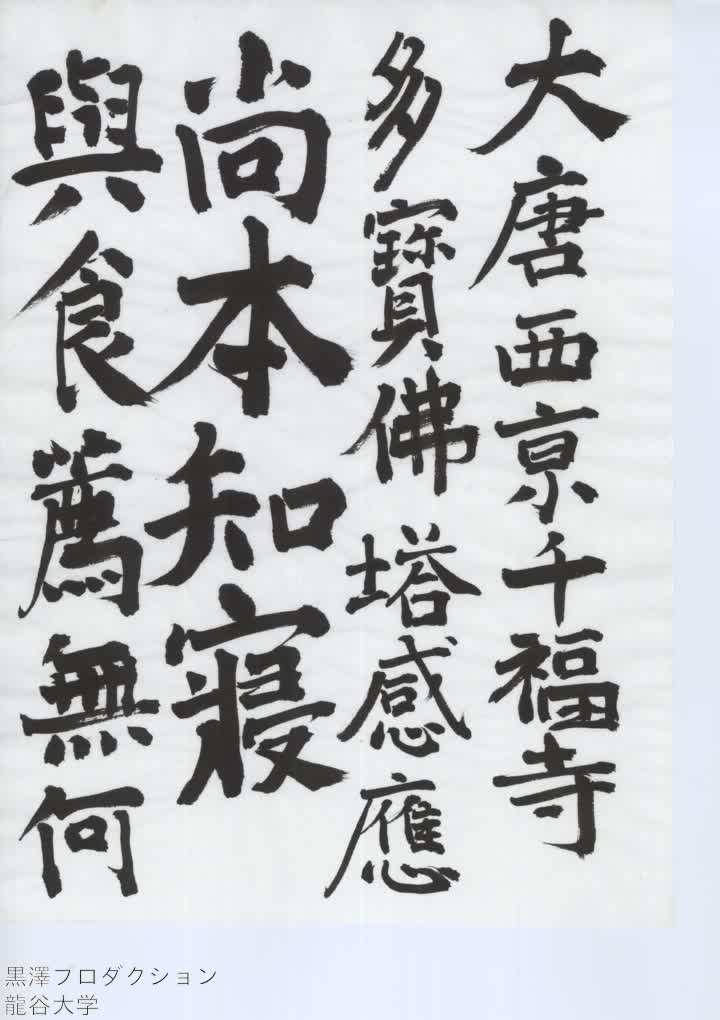 大唐西京千福寺
多寶佛塔感應
尚本知寢
與食薦無何
黒澤プロダクション
龍谷大学